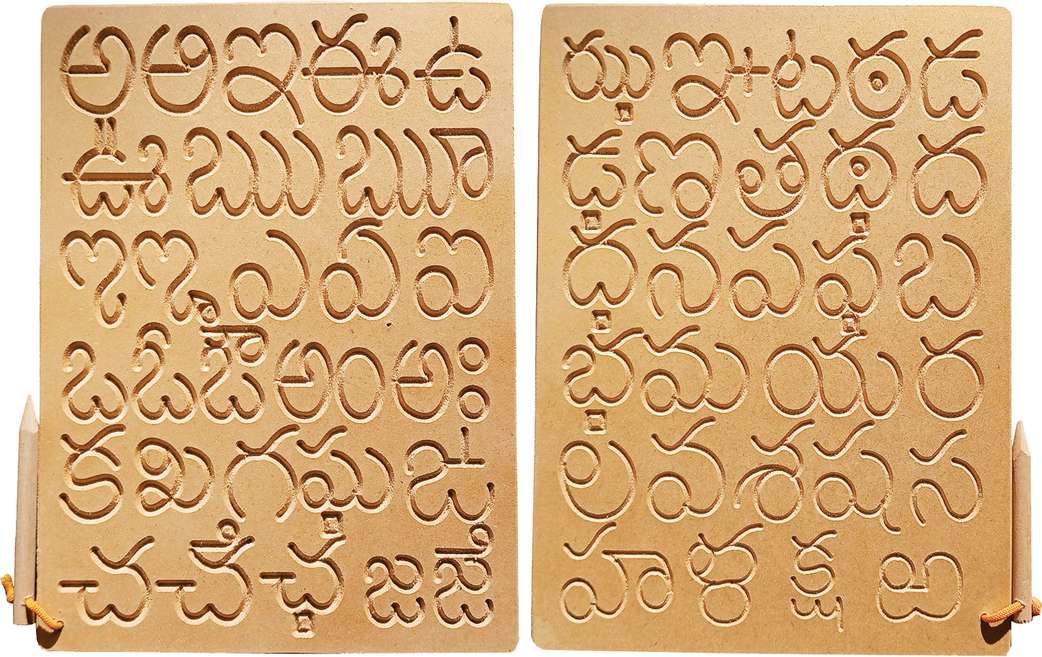 అ ఆ ఇ ఈ ఉ
ఊ ఋ ౠ
ఌ ౡ ఎ ఏ ఐ
ఒ ఓ ఔ అం అః
క ఖ గ ఘ ఙ
చ ౘ ఛ జ ౙ
ఝ ఞ ట ఠ డ
ఢ ణ త థ ద
ధ న ప ఫ బ
భ మ య ర
ల వ శ ష స
హ ళ క్ష ఱ